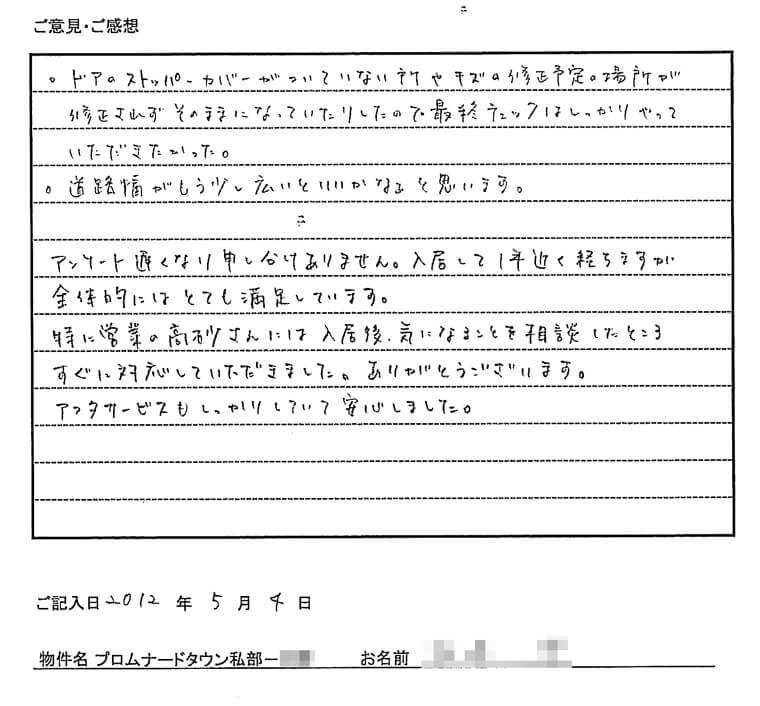 ご意見・ご感想
。ドアのストッパーカバーがついていない所やキズの修正予定の場所が
修正されずそのままになっていたりしたので最終チェックはしっかりやって
いただきたかった。
。道路幅がもう少し広いといいかなぁと思います。
アンケート遅くなり申し分けありません。入居して1年近く経ちますが
全体的にはとても満足しています。
特に営業の高砂さんには入居後、気になることを相談したところ
すぐに対応していただきました。ありがとうございます。
アフタサービスもしっかりしていて安心しました。
ご記入日2012年5月4日
物件名 プロムナードタウン私部一 お名前